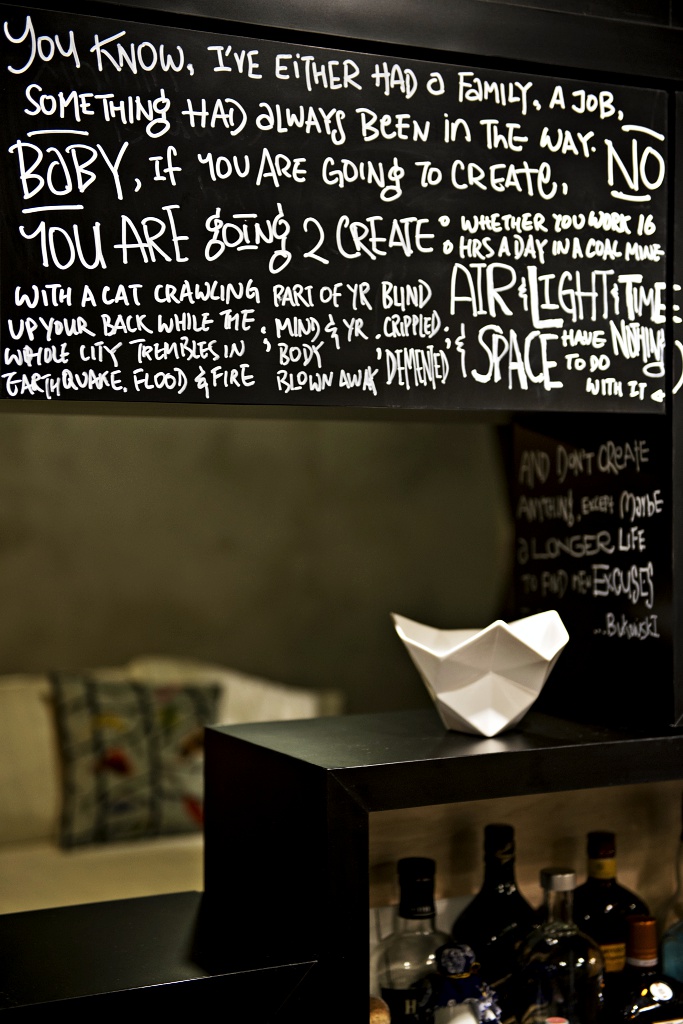 YOU KNOW, I'VE EITHER HAD a FAMILY, A JOB,
SOMETHING HAD aLWAYS BEEN in THE WAY.
BaBY, If YOU ARE GOING TO CREATE, NO
YOU ARE gOING 2 CREATE:
WHETHER YOU WORK 16
HRS A DAY IN A COAL MINE
WITH A CAT CRAWLING
UP YOUR BACK WHILE THE
WHOLE CITY TREMBLES IN
EARTHQUAKE, FLOOD & FIRE
PART OF YR BLIND
MIND & YR . CRIPPLED.
BODY 'DEMENTED'
BLOWN AWAY
AIR & LIGHT & TIME
& SPACE HAVE NOTHING
TO DO
WITH IT
AND DON'T CREATE
ANYTHING, EXCEPT MayBE
a LONGER LIFE
TO FIND NEW EXCUSES
...BUKOWSKI